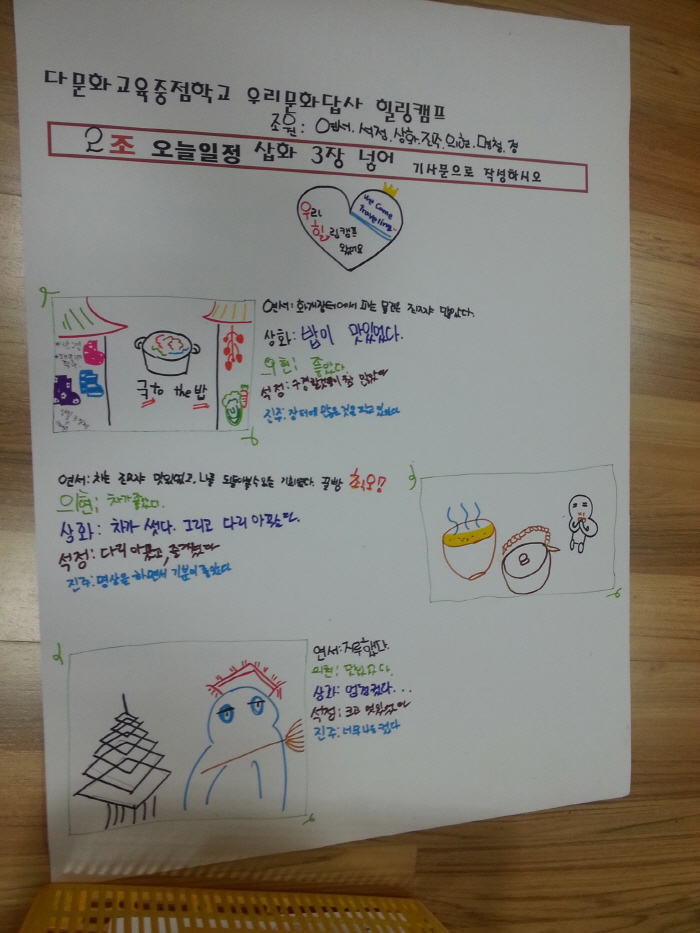 다문화교육중점학교 우리문화답사 힐링캠프
조원: 연서, 석정, 상화, 진주, 의현,
2조 오늘일정 삽화 3장 넣어 기사문으로 작성하시오
we Come
Traveling~
우리
힐링캠프
왔어요
연서: 화개장터에서 파는 물건은 진짜 많았다.
상화: 밥이 맛있었다.
의현: 좋았다.
석정: 구경할것이 많았다
진주: 장터에 많은 것을 팔고 있었다
국to the밥
연서: 차는 진짜 맛있었고, 나를 되돌아볼수있는 기회였다. 꿀빵 최고!
의현: 차가 좋았다.
상화: 차가 썼다. 그리고 다리 아팠다.
석정: 다리 아팠고, 즐거웠다
진주: 명상을 하면서 기분이 좋았다
연서: 지루했다.
의현:
상화: 엄청컸다...
석정: 크고 멋있었다
진주: 너무나도 컸다